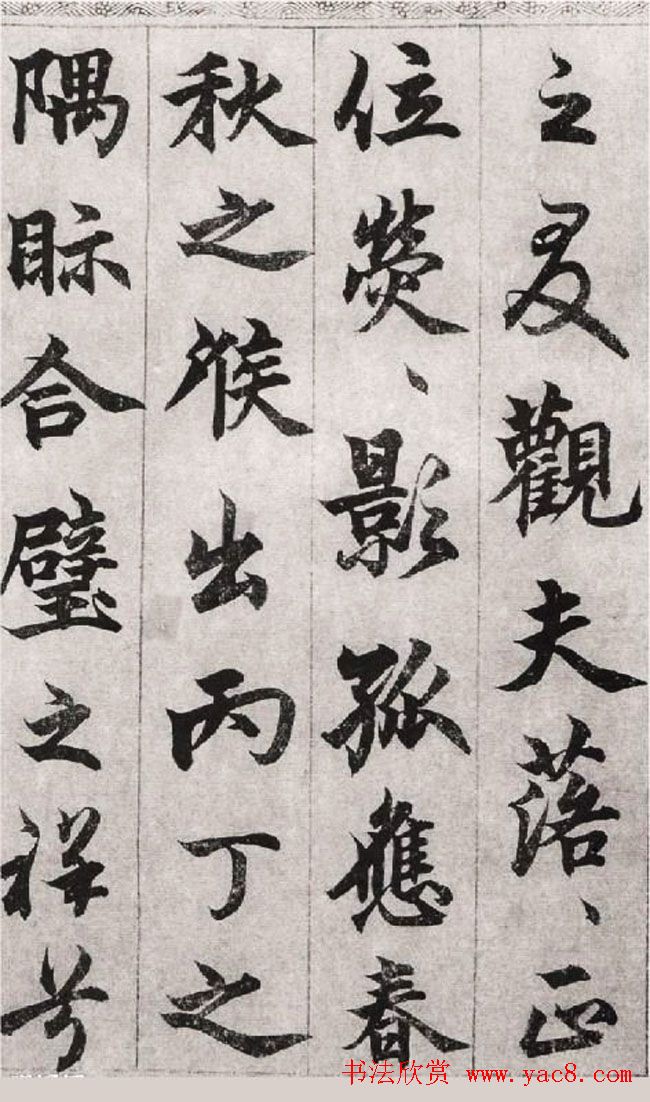 之爰觀夫落、正
位熒、影孤應春
秋之候出丙丁之
隅眎合璧之祥兮
书法欣赏 www.yac8.com